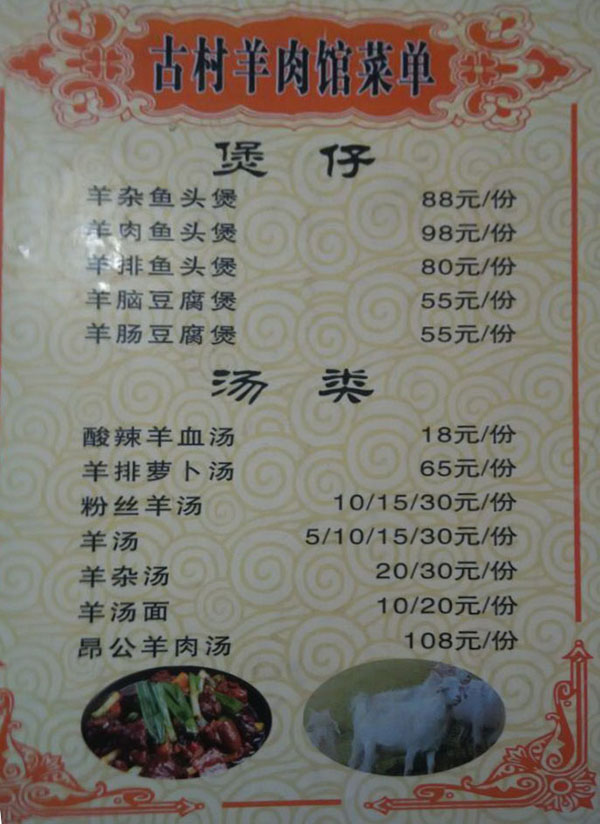 古村羊肉馆菜单
煲仔
羊杂鱼头煲 88元/份
羊肉鱼头煲 98元/份
羊排鱼头煲 80元/份
羊脑豆腐煲 55元/份
羊肠豆腐煲 55元/份
汤类
酸辣羊血汤 18元/份
羊排萝卜汤 65元/份
粉丝羊汤 10/15/30元/份
羊汤 5/10/15/30元/份
羊杂汤 20/30元/份
羊汤面 10/20元/份
昂公羊肉汤 108元/份